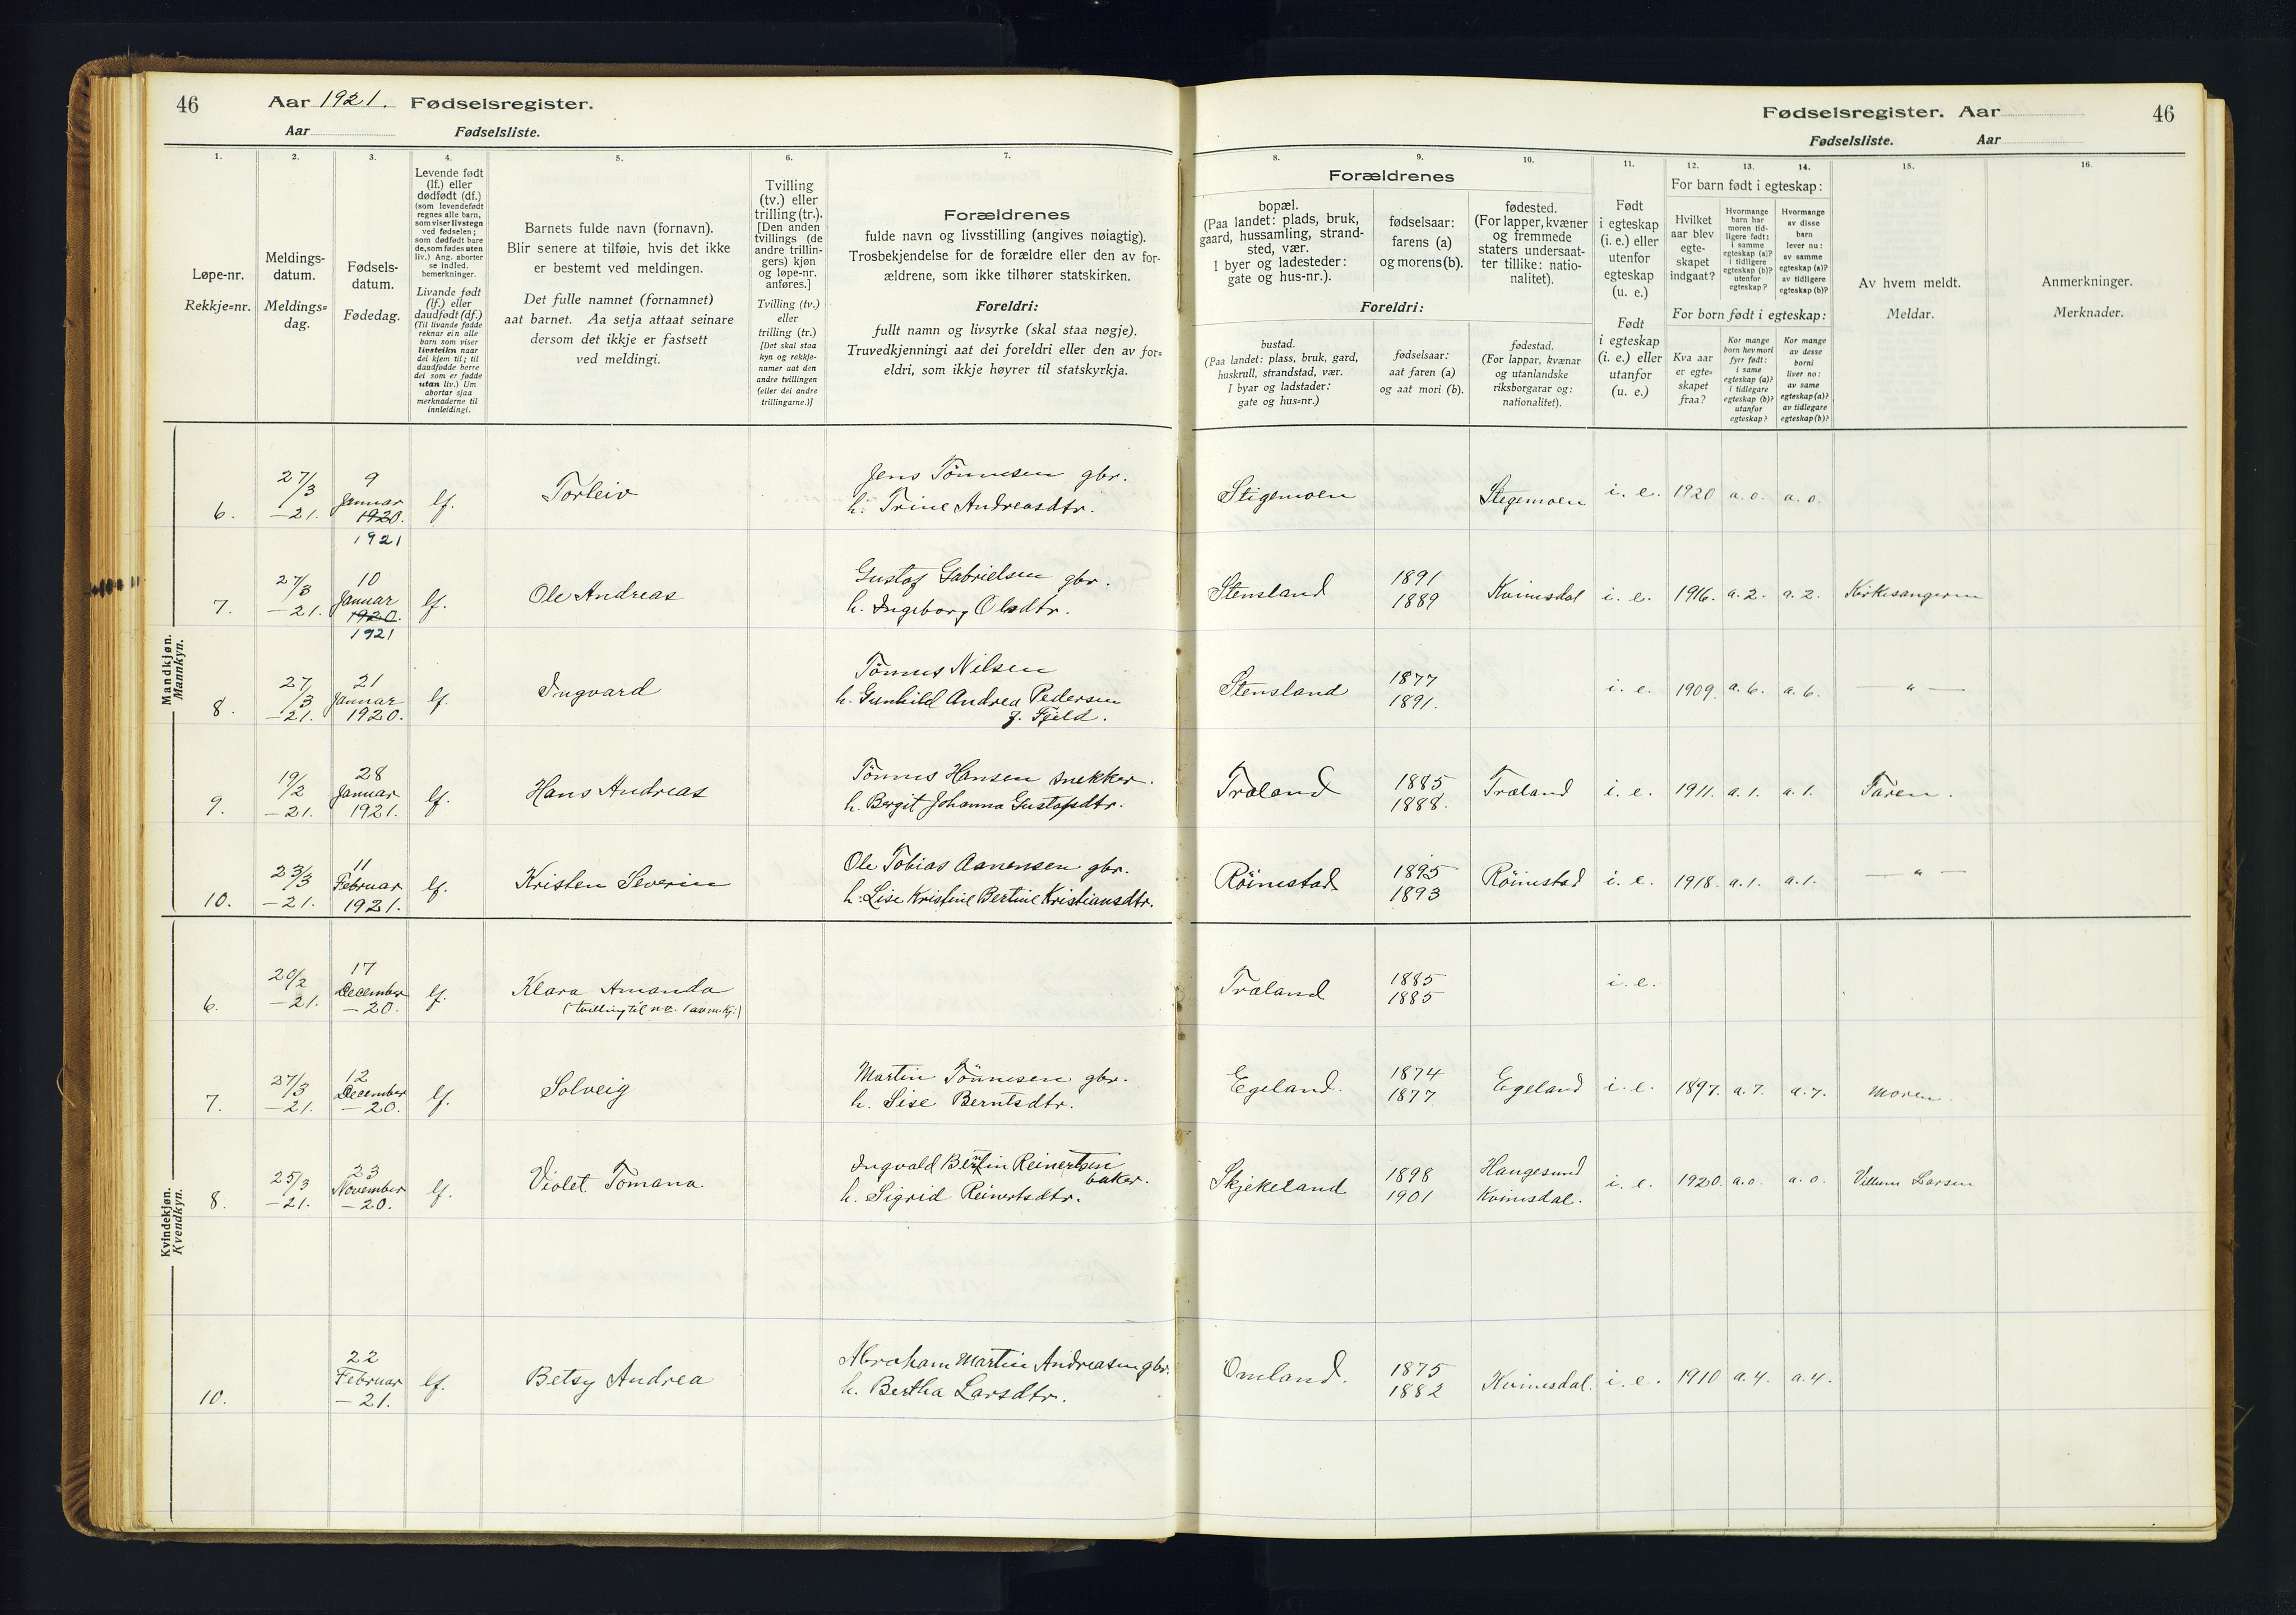 46
Aar 1921. Fødselsregister.
Aar
Fødselsliste.
1.
Løpe-nr.
Rekkje=nr.
2.
Meldings-
datum.
Meldings=
dag.
3.
Fødsels-
datum.
Fødedag.
4.
Levende født
(lf.) eller
dødfødt (df.)
(som levendefødt
regnes alle barn,
som viser livstegn
ved fødselen;
som dødfødt bare
de, som fødes uten
liv.) Ang. aborter
se indled.
bemerkninger.
Livande født
(lf.) eller
daudfødt (df.)
(Til livande fødde
reknar ein alle
barn som viser
livsteikn naar
dei kjem til; til
daudfødde berre
dei som er fødde
utan liv.) Um
abortar sjaa
merknaderne til
innleidingi.
5.
Barnets fulde navn (fornavn).
Blir senere at tilføie, hvis det ikke
er bestemt ved meldingen.
Det fulle namnet (fornamnet)
aat barnet. Aa setja attaat seinare
dersom det ikkje er fastsett
ved meldingi.
6.
Tvilling
(tv.) eller
trilling (tr.).
[Den anden
tvillings (de
andre trillin-
gers) kjøn
og løpe-nr.
anføres.]
Tvilling (tv.)
eller
trilling (tr.)
[Det skal staa
kyn og rekkje-
numer aat den
andre tvillingen
(eller dei andre
trillingarne.)]
7.
Forældrenes
fulde navn og livsstilling (angives nøiagtig).
Trosbekjendelse for de forældre eller den av for-
ældrene, som ikke tilhører statskirken.
Foreldri:
fullt namn og livsyrke (skal staa nøgje).
Truvedkjenningi aat dei foreldri eller den av for=
eldri, som ikkje høyrer til statskyrkja.
Fødselsregister. Aar
46
Fødselsliste.
Aar
Forældrenes
8.
bopæl.
(Paa landet: plads, bruk,
gaard, hussamling, strand-
sted, vær.
I byer og ladesteder:
gate og hus-nr.).
9.
fødselsaar:
farens (a)
og morens (b).
10.
fødested.
(For lapper, kvæner
og fremmede
staters undersaat-
ter tillike: natio-
nalitet).
Foreldri:
bustad.
(Paa landet: plass, bruk, gard,
huskrull, strandstad, vær.
I byar og ladstader:
gate og hus=nr.)
fødselsaar:
aat faren (a)
og aat mori (b).
fødestad.
(For lappar, kvænar
og utanlandske
riksborgarar og:
nationalitet).
11.
Født
i egteskap
(i. e.) eller
utenfor
egteskap
(u. e.)
Født
i egteskap
(i. e.) eller
utanfor
(u. e.)
12.
13.
14.
For barn født i egteskap:
Hvilket
aar blev
egte-
skapet
indgaat?
Hvormange
barn har
moren tid-
ligere født:
i samme
egteskap (a)?
i tidligere
egteskap (b)?
utenfor
egteskap?
Hvormange
av disse
barn
lever nu:
av samme
egteskap (a)?
av tidligere
egteskap (b)?
For born født i egteskap:
Kva aar
er egte=
skapet
fraa?
Kor mange
born hev mori
fyrr født:
i same
egteskap (a)?
i tidlegare
egteskap (b)?
utanfor
egteskap?
Kor mange
av desse
borni
liver no:
av same
egteskap (a)?
av tidlegare
egteskap (b)?
15.
Av hvem meldt.
Meldar.
16.
Anmerkninger.
Merknader.
Mandkjøn.
Mannkyn.
6. 27/3 –21. 9 Januar 1920. 1921 lf. Torleiv
Jens Tönnesen gbr.
h. Trine Andreasdtr.
Stigemoen Stegemoen i. e. 1920 a. o. a. o.
7. 27/3 –21. 10 Januar 1920. 1921 lf. Ole Andreas
Gustaf Gabrielsen gbr.
h. Ingeborg Olsdtr.
Stensland 1891 1889 Kvinesdal i. e. 1916. a. 2. a. 2. Kirkesangeren
8. 27/3 –21. 21 Januar 1920. lf. Ingvard
Tönnes Nilsen
h. Gunhild Andrea Pedersen
f. Fjeld.
Stensland 1877 1891. i. e. 1909. a. 6. a. 6. — " —
9. 19/2 –21. 28 Januar 1921. lf. Hans Andreas
Tönnes Hansen snekker.
h. Bergit Johanna Gustafsdtr.
Træland 1885 1888. Træland i. e. 1911. a. 1. a. 1. Faren.
10. 23/3 –21. 11 Februar 1921. lf. Kristen Severin
Ole Tobias Aanensen gbr.
h. Lise Kristine Bertine Kristiansdtr.
Röinestad 1895 1893 Röinestad i. e. 1918. a. 1. a. 1. — " —
Kvindekjøn.
Kvendkyn.
6. 20/2 –21. 17 December –20. lf. Klara Amanda
(tvilling til nr. 1 av m.kj.)
Træland 1885 1885 i. e.
7. 27/3 –21. 12 December –20. lf. Solveig
Martin Tönnesen gbr.
h. Sise Berntsdtr.
Egeland. 1874 1877 Egeland i. e. 1897. a. 7. a. 7. Moren.
8. 25/3 –21. 23 November –20. lf. Violet Tomana
Ingvald Berntin Reinertsen
baker.
h. Sigrid Reinertsdtr.
Skjekeland 1898 1901 Haugesund Kvinesdal. i. e. 1920. a. o. a. o. Villum Larsen
10. 22 Februar –21. lf. Betsy Andrea
Abraham Martin Andreasen gbr.
h. Bertha Larsdtr.
Omland. 1875 1882 Kvinesdal. i. e. 1910 a. 4. a. 4.